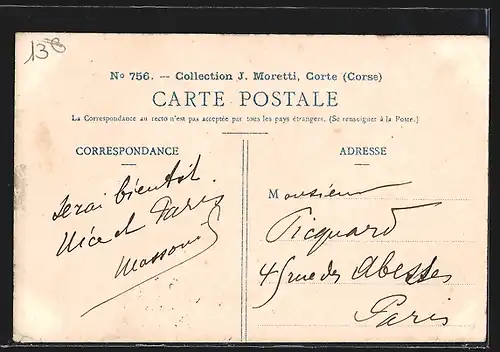 138
No 756. — Collection J. Moretti, Corte (Corse)
CARTE POSTALE
La Correspondance au recto n'est pas acceptée par tous les pays étrangers. (Se renseigner à la Poste.)
CORRESPONDANCE
Serai bientôt
Nice et Paris
Massoni
ADRESSE
Monsieur
Picquard
45 rue des Abesses
Paris